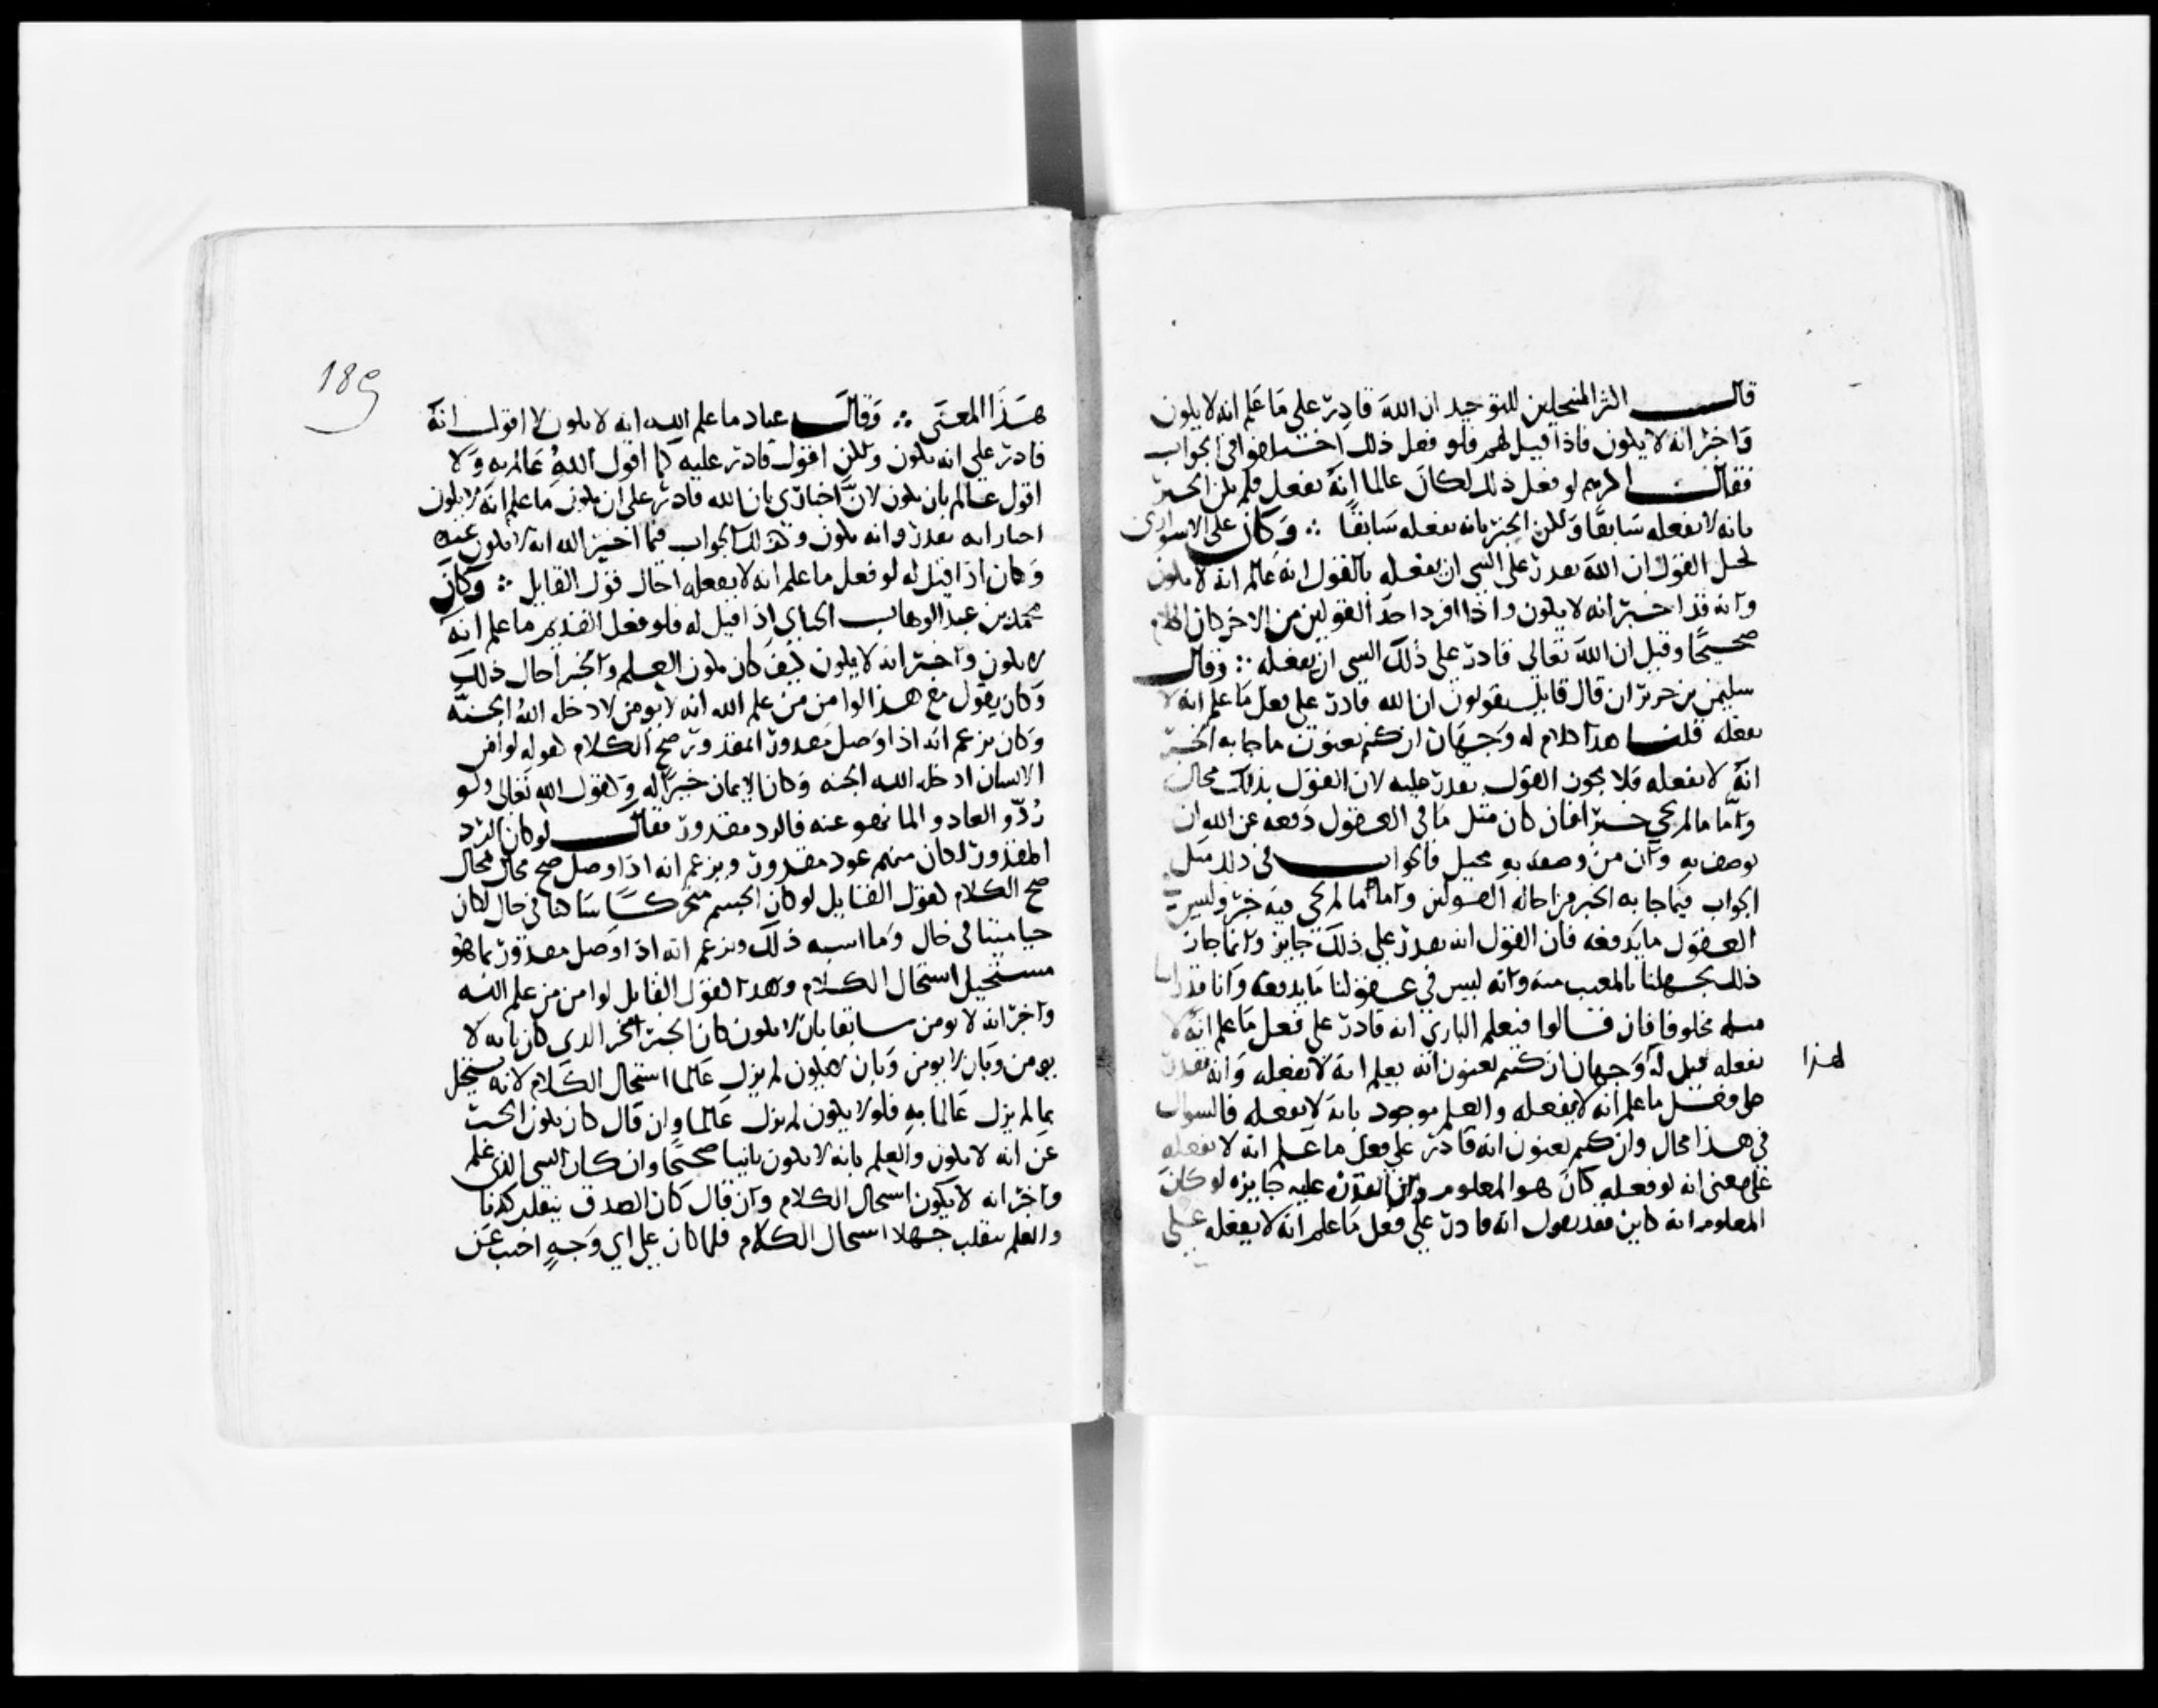 قالت اكثر المنتحلين للتوحيد ان الله قادر على ما علم انه لا يكون
واخبر انه لا يكون فاذا قيل لهم فلو فعل ذلك اختلفوا في الجواب
فقالت اكثرهم لو فعل ذلك لكان عالما انه يفعل فلم يكن الخبر
بانه لا يفعله سابقا ولكن الخبر بانه يفعله سابقا ∴ وكان على الاسوارى
يحيل القول ان الله يقدر على الشي ان يفعله بالقول انه عالم انه لا يكون
وانه قد اخبر انه لا يكون واذا افرد احد القولين من الاخر كان الكلام
صحيحا وقيل ان الله تعالى قادر على ذلك الشي ان يفعله ∴ وقال
سليمن بن جرير ان قال قايل يقولون ان الله قادر على فعل ما علم انه لا
يفعله قلنا هذا كلام له وجهان ان كنتم تعنون ما جا به الخبر
انه لا يفعله فلا يجوز القول يقدر عليه لان القول بذلك محال
واما ما لم يجي خبر افان كان مثل ما في العقول دفعه عن الله ان
يوصف به وان من وصفه به محيل فالجواب في ذلك مثل
الجواب فيما جا به الخبر من احالة القولين واما ما لم يجي فيه خبر وليس في
العقول ما يدفعه فان القول انه يقدر على ذلك جايز وانما جاز
ذلك لجهلنا بالمغيب منه وانه ليس في عقولنا ما يدفعه وانا قد راينا
مثله مخلوقا فان قالوا فيعلم البارى انه قادر على فعل ما علم انه لا
يفعله قيل له وجهان ان كنتم تعنون انه يعلم انه لا يفعله وانه يقدر
على فعل ما علم انه لا يفعله والعلم موجود بانه لا يفعله فالسوال
في هذا محال وان كنتم تعنون انه قادر على فعل ما علم انه لا يفعله
على معنى انه لو فعله كان هو المعلوم وان القدرة عليه جايزه لو كان
المعلوم انه كاين فقد يقول انه قادر على فعل ما علم انه لا يفعله على
لهذا
189
هذا المعنى ∴ وقال عباد ما علم الله انه لا يكون لا اقول انه
قادر على انه يكون ولكن اقول قادر عليه كما اقول الله عالم به ولا
اقول عالم بان يكون لان اخبارى بان الله قادر على ان يكون ما علم انه لا يكون
اخبار انه يقدر وانه يكون وكذلك الجواب فيما اخبر الله انه لا يكون عنده
وكان اذا قيل له لو فعل ما علم انه لا يفعله احال قول القايل ∴ وكان
محمد بن عبد الوهاب الجباى اذا قيل له فلو فعل القديم ما علم انه
لا يكون واخبر انه لا يكون كيف كان يكون العلم والخبر احال ذلك
وكان يقول مع هذا لو امن من علم الله انه لا يومن لادخله الله الجنة
وكان يزعم انه اذا وصل مقدور المقدور صح الكلام كقوله لو امن
الانسان ادخله الله الجنه وكان الايمان خيرا له وكقول الله تعالى ولو
ردوا لعادوا لما نهوا عنه فالرد مقدور فقال لو كان الرد
المقدور لكان منهم عود مقدور ويزعم انه اذا وصل صح محال محال
صح الكلام كقول القايل لو كان الجسم متحركا ساكنا في حال لكان
حيا ميتا في حال وما اشبه ذلك ويزعم انه اذا وصل مقدور بما هو
مستحيل استحال الكلام وهذا كقول القايل لو امن من علم الله
واخبر انه لا يومن سابقا بان لا يكون كان الخبر الخر الذى كان بانه لا
يومن وبان لا يومن وبان لا يكون لم يزل عالما استحال الكلام لانه يستحيل
بما لم يزل عالما به فلو لا يكون لم يزل عالما وان قال كان يكون الخبر
عن انه لا يكون والعلم بانه لا يكون ثابتا صحيحا وان كان الشي الذى علم
واخبر انه لا يكون استحال الكلام وان قال كان الصدق ينقلب كذبا
والعلم ينقلب جهلا استحال الكلام فلما كان على اى وجه اجيب عن